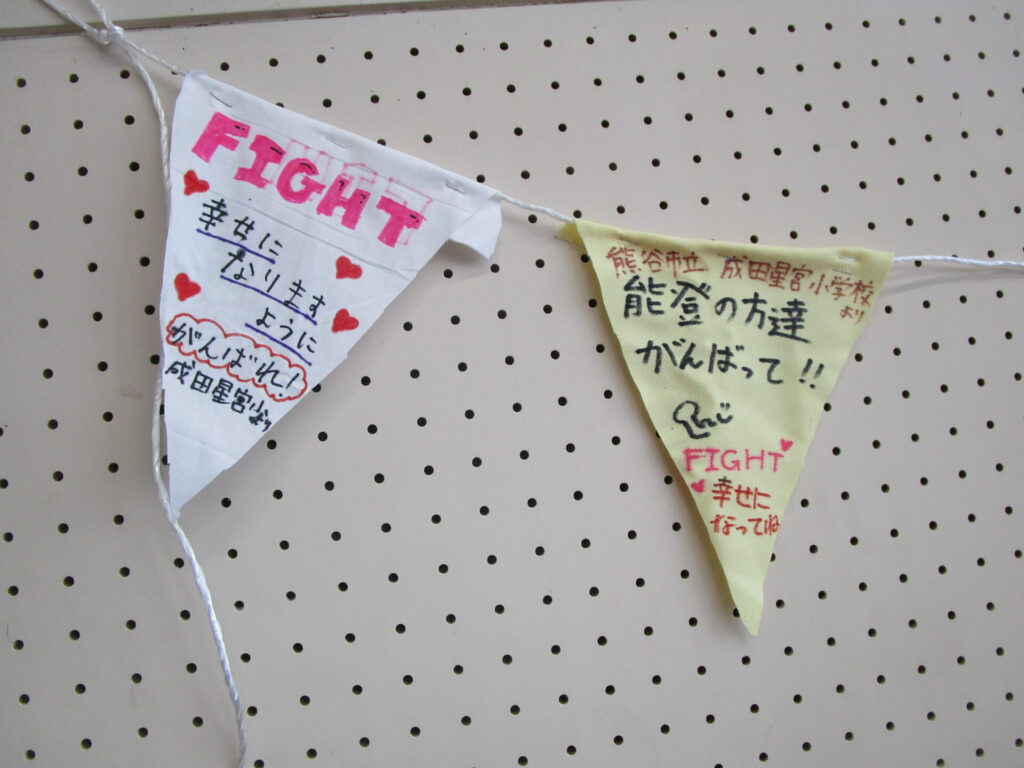 FIGHT
幸せに
なります
ように
がんばれ!
成田星宮小より
熊谷市立 成田星宮小学校
より
能登の方達
がんばって!!
FIGHT
幸せに
なってね